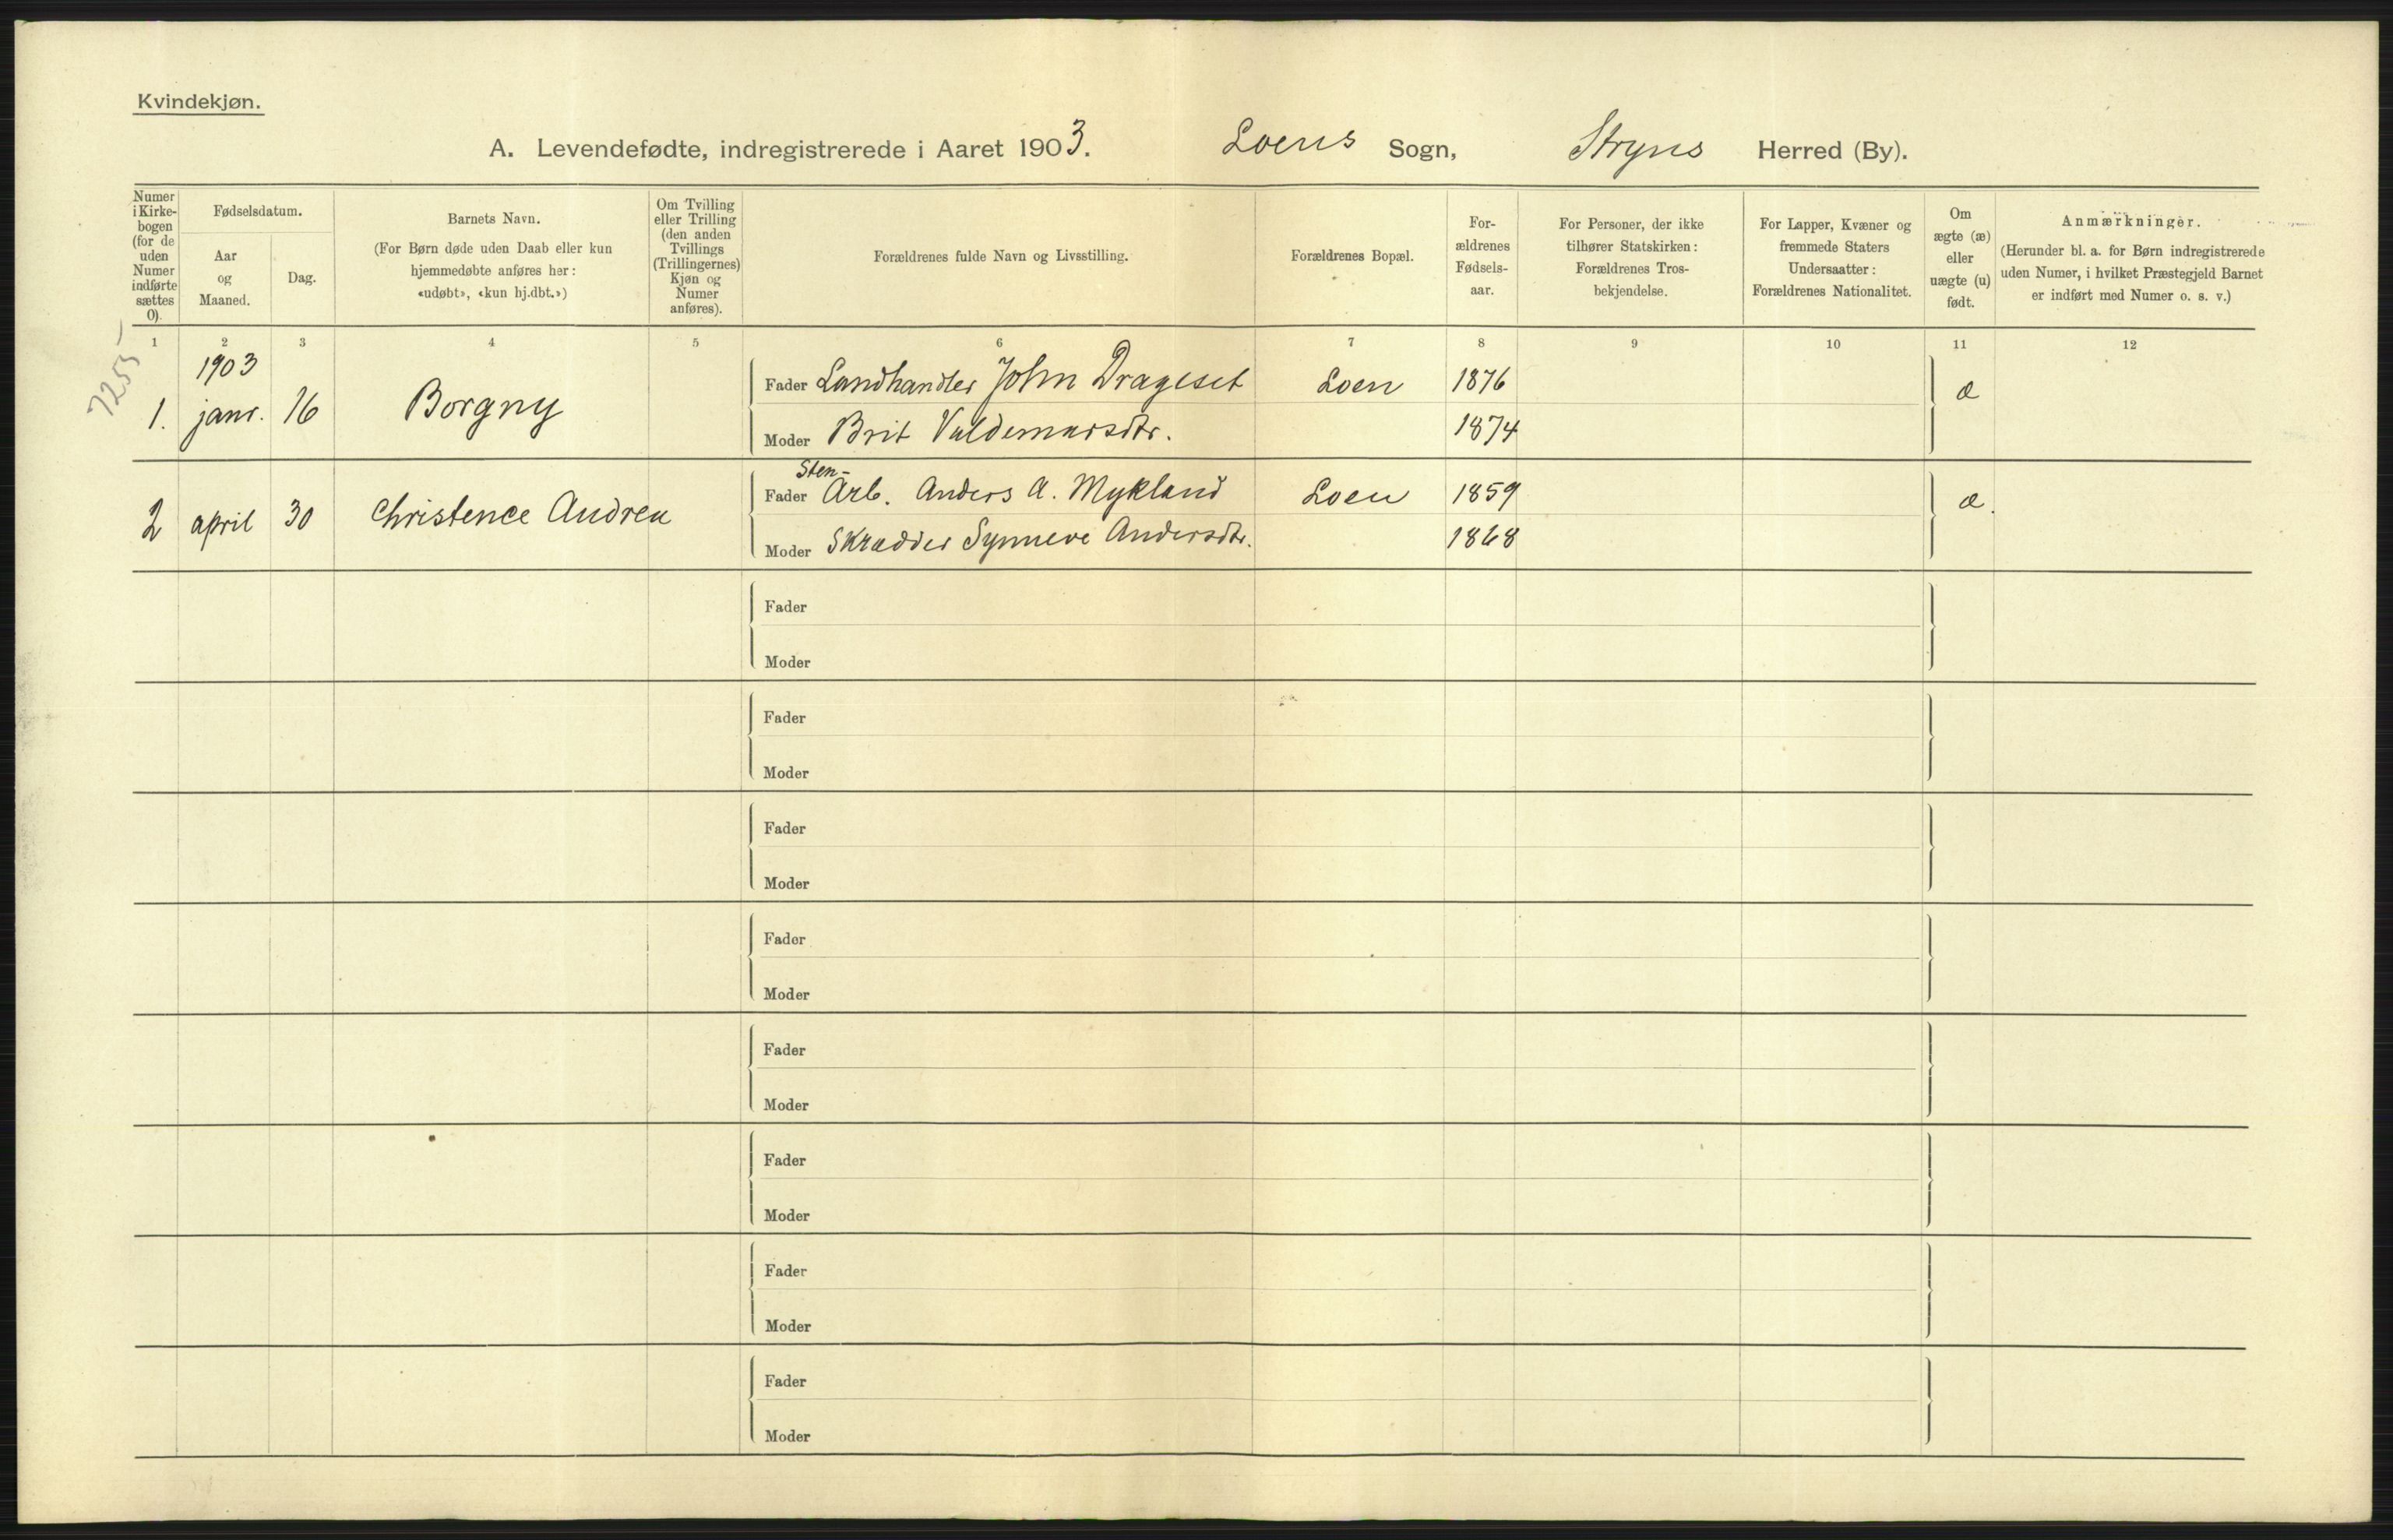 Kvindekjøn.
A. Levendefødte, indregistrerede i Aaret 1903. Loens Sogn, Stryns Herred (By).
Numer i Kirke-bogen (for de uden Numer indførte sættes 0).
Fødselsdatum.
Aar og Maaned.
Dag.
Barnets Navn.
(For Børn døde uden Daab eller kun
hjemmedøbte anføres her:
«udøbt», «kun hj.dbt.»)
Om Tvilling
eller Trilling
(den anden
Tvillings
(Trillingernes)
Kjøn og
Numer
anføres).
Forældrenes fulde Navn og Livsstilling.
Forældrenes Bopæl.
For-
ældrenes
Fødsels-
aar.
For Personer, der ikke
tilhører Statskirken:
Forældrenes Tros-
bekjendelse.
For Lapper, Kvæner og
fremmede Staters
Undersaatter:
Forældrenes Nationalitet.
Om
ægte (æ)
eller
uægte (u)
født.
Anmærkninger.
(Herunder bl. a. for Børn indregistrerede
uden Numer, i hvilket Præstegjeld Barnet
er indført med Numer o. s. v.)
1 2 3 4 5 6 7 8 9 10 11 12
7255
1903
1. janr. 16 Borgny Fader Landhandler John Drageset Loen 1876 æ
Moder Brit Valdemarsdtr. 1874
Sten-
2 april 30 Christence Andrea Fader Arb. Anders A. Mykland Loen 1859 æ.
Moder Skrædder Synneve Andersdtr. 1868
Fader
Moder
Fader
Moder
Fader
Moder
Fader
Moder
Fader
Moder
Fader
Moder
Fader
Moder
Fader
Moder